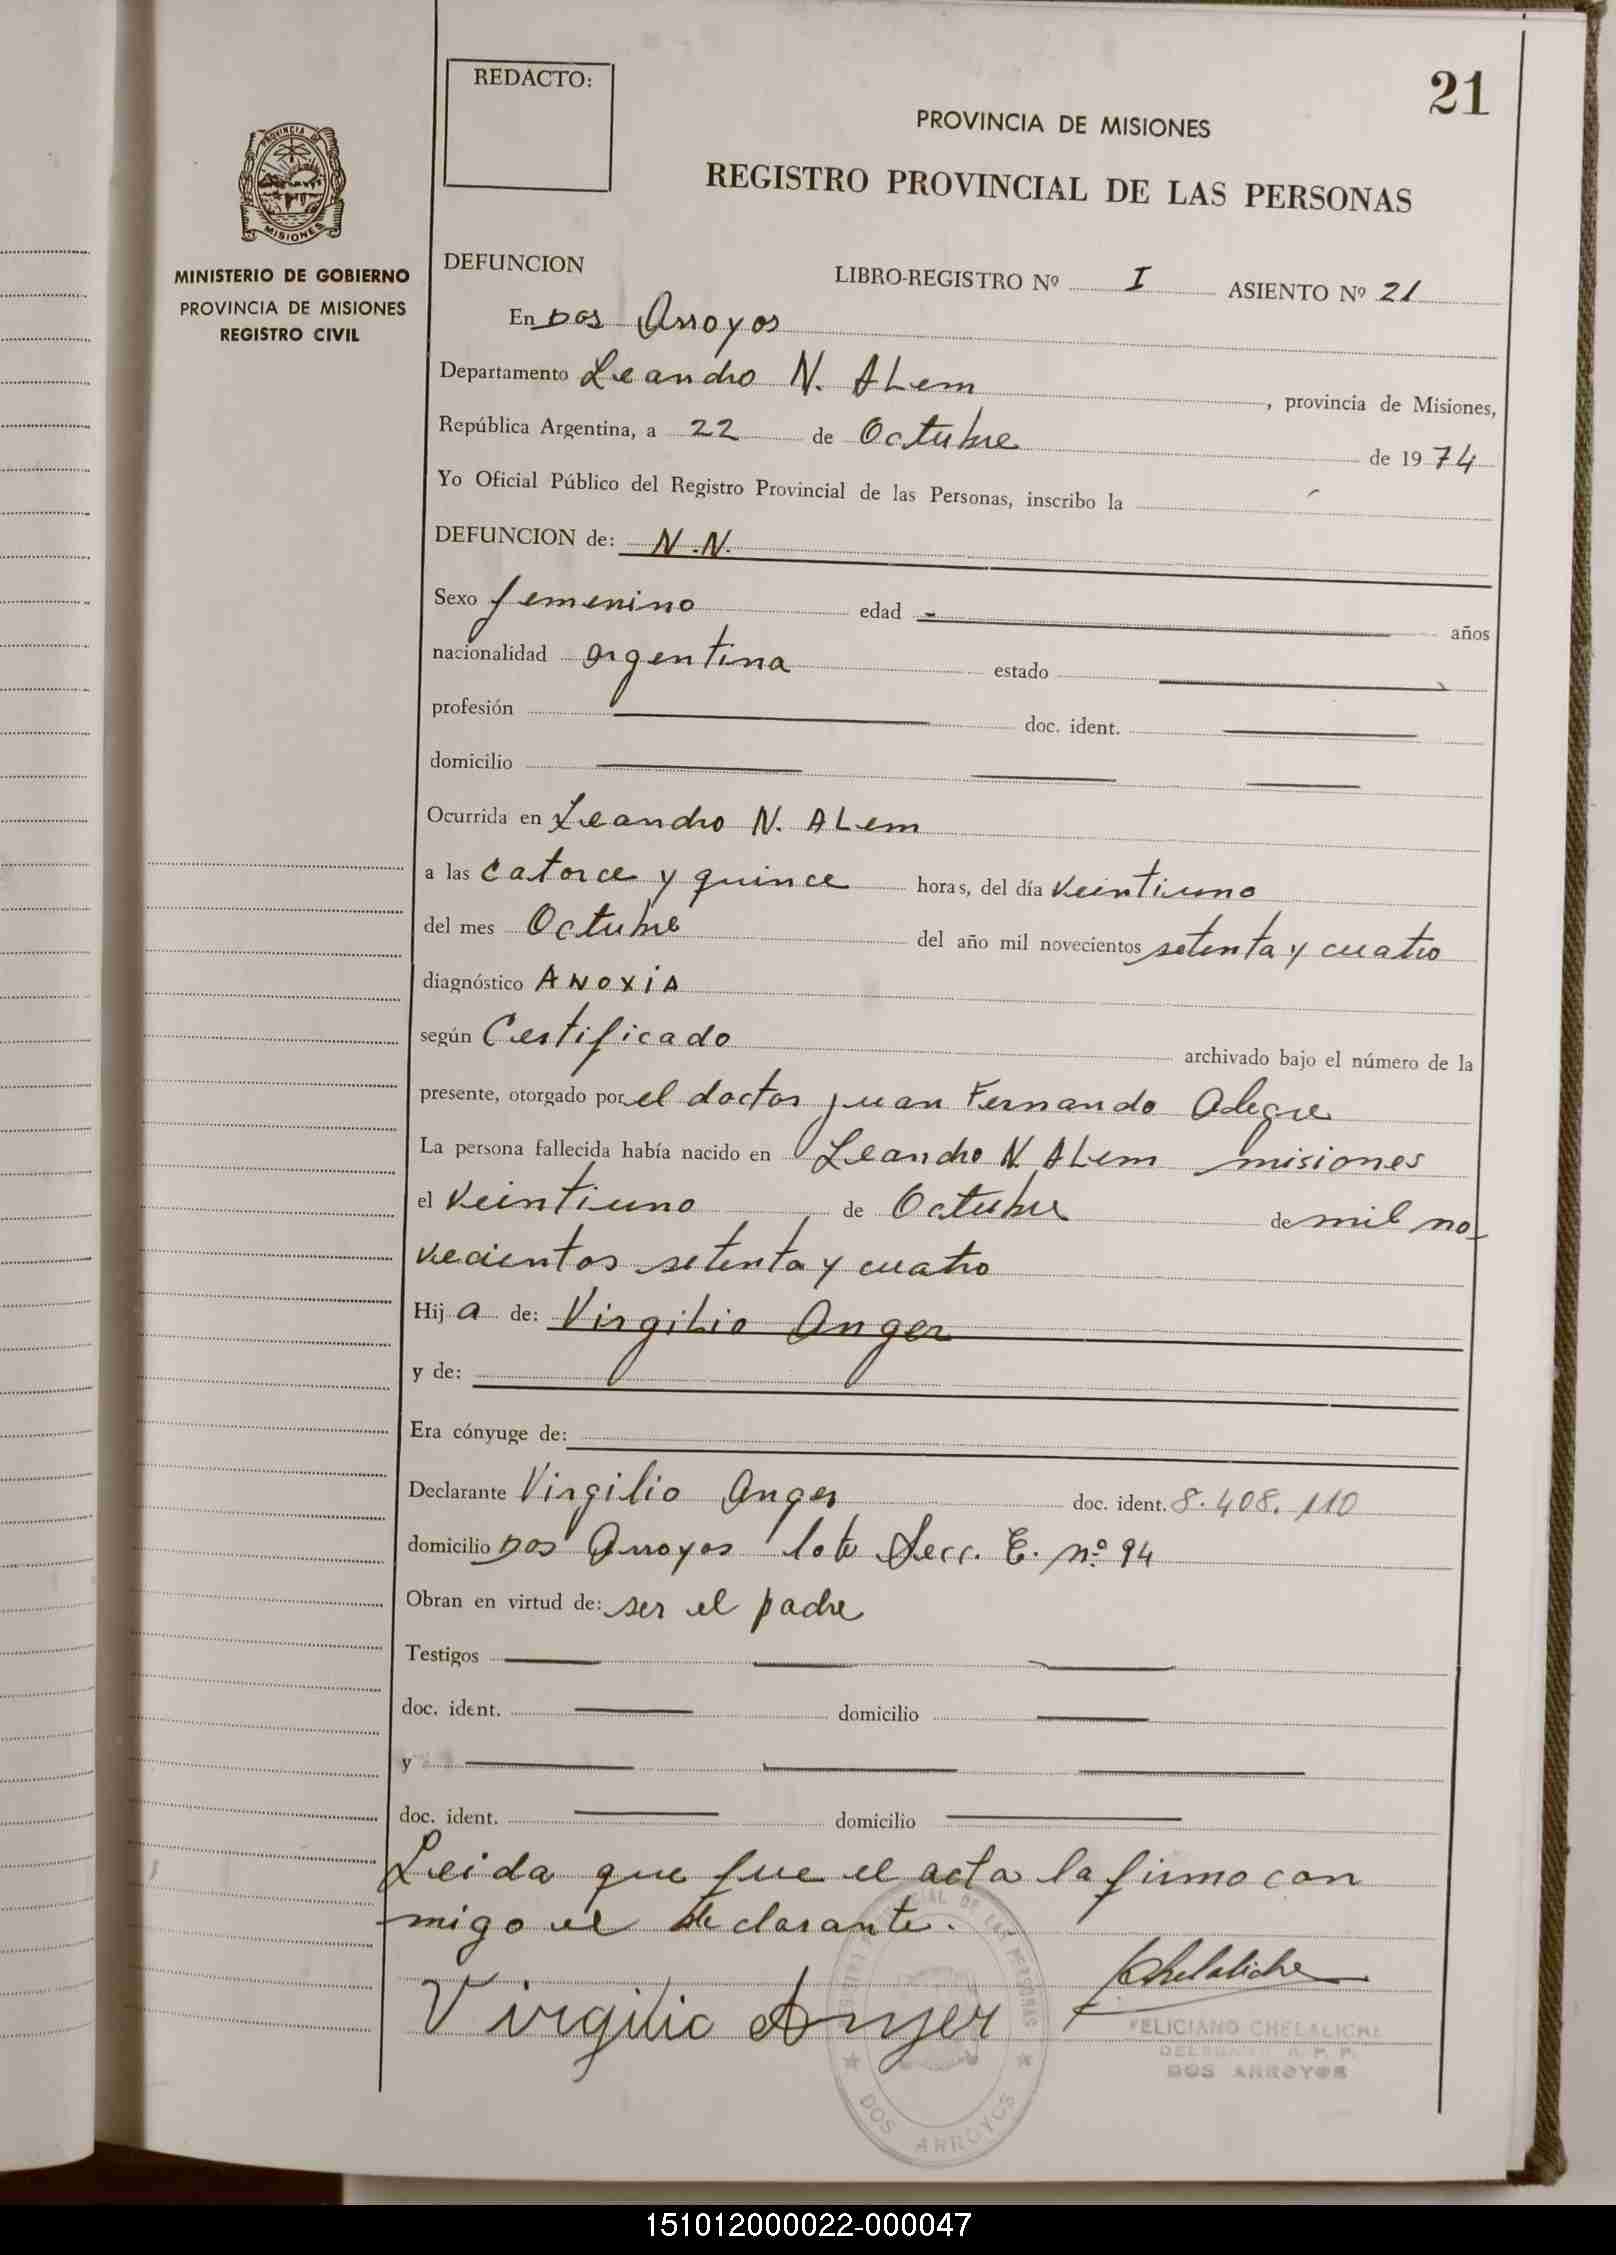 REDACTO:
21
PROVINCIA DE MISIONES
REGISTRO PROVINCIAL DE LAS PERSONAS
PROVINCIA DE
MISIONES
MINISTERIO DE GOBIERNO
PROVINCIA DE MISIONES
REGISTRO CIVIL
DEFUNCION LIBRO-REGISTRO Nº I ASIENTO Nº 21
En DOS Arroyos
Departamento Leandro N. ALem, provincia de Misiones,
República Argentina, a 22 de Octubre de 1974
Yo Oficial Público del Registro Provincial de las Personas, inscribo la
DEFUNCION de: N.N.
Sexo femenino edad - años
nacionalidad argentina estado
profesión doc. ident.
domicilio
Ocurrida en Leandro N. ALem
a las catorce y quince horas, del día veintiuno
del mes Octubre del año mil novecientos setenta y cuatro
diagnóstico ANOXIA
según Certificado archivado bajo el número de la
presente, otorgado por el doctor juan Fernando Alegre
La persona fallecida había nacido en Leandro N. ALem misiones
el veintiuno de Octubre de mil no-
vecientos setenta y cuatro
Hija de: Virgilio Anger
y de:
Era cónyuge de:
Declarante Virgilio Anger doc. ident. 8.408.110
domicilio DOS Arroyos lote Secc. E. nº 94
Obran en virtud de: ser el padre
Testigos
doc. ident. domicilio
y
doc. ident. domicilio
Leida que fue el acta la firmo con
migo el declarante.
Virgilio Anger
FChelaliche
FELICIANO CHELALICHE
DELEGADO R. P. P.
DOS ARROYOS
DOS ARROYOS
151012000022-000047